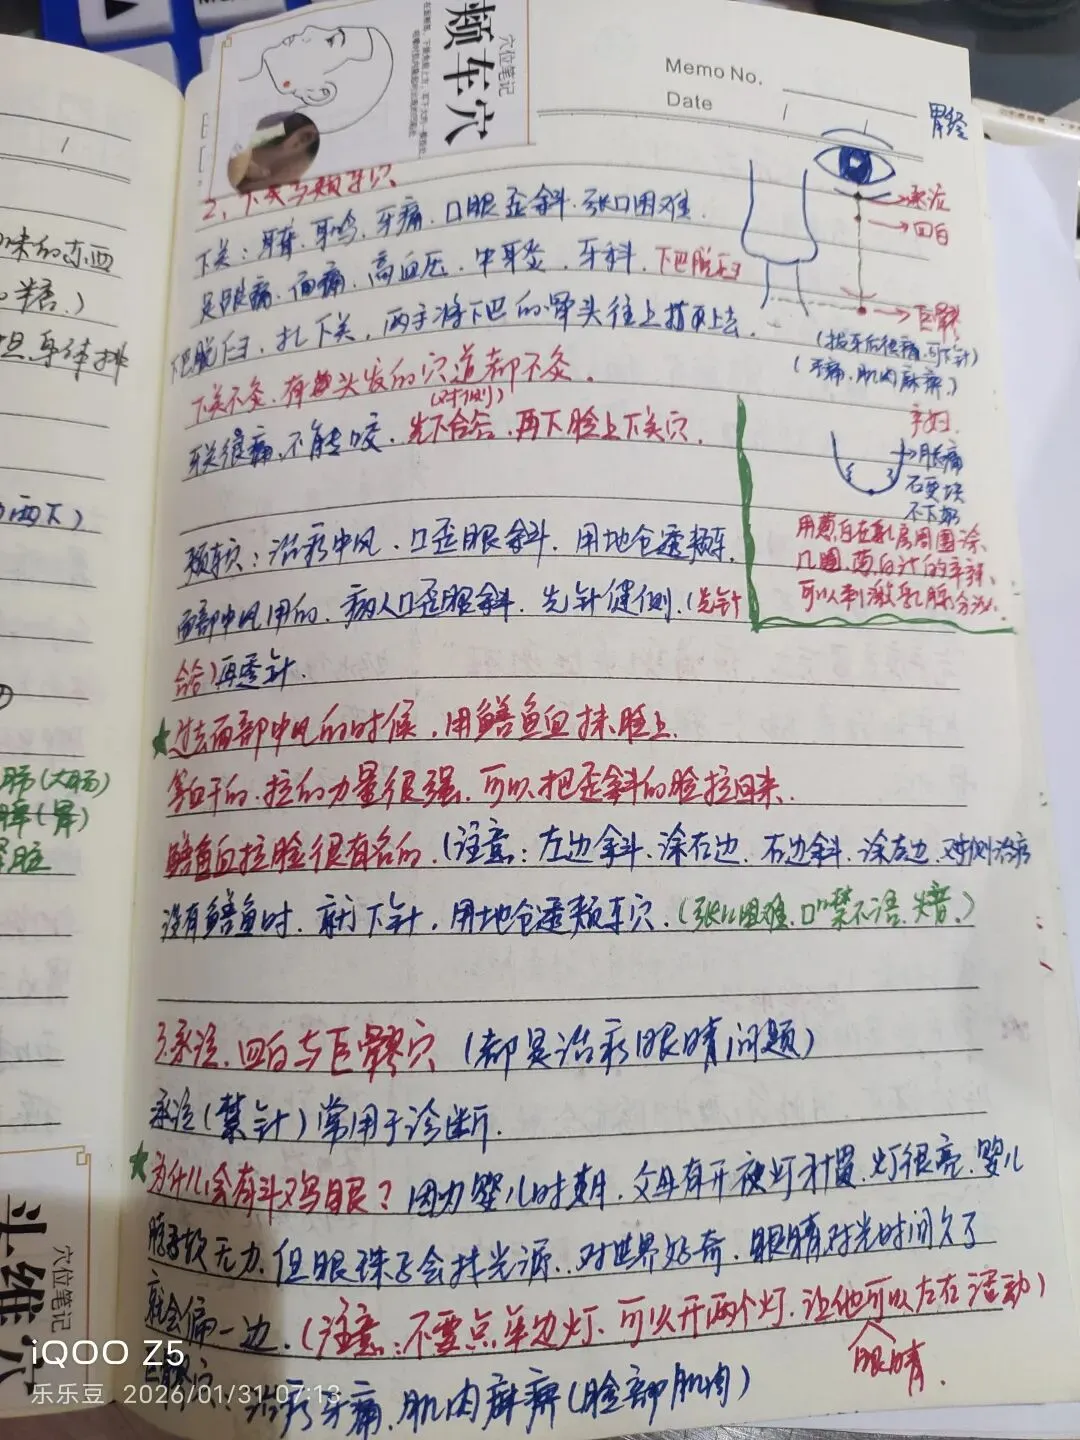 穴位笔记
颊车穴
Memo No.
Date
胃经
2、下关与颊车穴
下关：耳聋、耳鸣、牙痛、口眼歪斜、张口困难、
足跟痛、面痛、高血压、中耳炎、牙科、下巴脱臼
下巴脱臼，扎下关，两手将下巴的骨头往上
下关不灸，有头发的穴道都不灸。
(对侧)
牙关很痛，不能咬，先下合谷，再下脸上下关穴。
承泣
四白
巨髎
(拔牙后很痛，可下针)
(牙痛、肌肉麻痹。)
孕妇
胀痛
石硬块
不下奶
用葱白在乳房周围涂
几圈，葱白汁的辛辣、
可以刺激乳腺分泌。
颊车穴：治疗中风、口歪眼斜、用地仓透颊车、
面部中风用的、病人口歪眼斜、先针健侧、(先针
合谷)再透针．
过去面部中风的时候，用鳝鱼血抹脸上、
等血干的、拉的力量很强、可以把歪斜的脸拉回来、
鳝鱼血拉脸很有名的、(注意：左边斜、涂右边、右边斜、涂左边、对侧治疗
没有鳝鱼时、就下针，用地仓透颊车穴、(张口困难、口噤不语、失音、)
3、承泣、四白与巨髎穴 (都是治疗眼睛问题)
承泣(禁针)常用于诊断．
为什么会有斗鸡眼？因为婴儿时期、父母有开夜灯习惯、灯很亮、婴儿
脖子软无力、但眼珠子会找光源、对世界好奇、眼睛对光时间久了
就会偏一边、(注意：不要点单边灯、可以开两个灯、让他可以左右活动)
眼睛
巨髎穴：治疗牙痛、肌肉麻痹(脸部肌肉)
味的东西
糖、)
但身体排
两下)
肺(大肠)
脾(胃)
肾脏
头维穴
穴位笔记
iQOO Z5
乐乐豆 2026/01/31 07:13